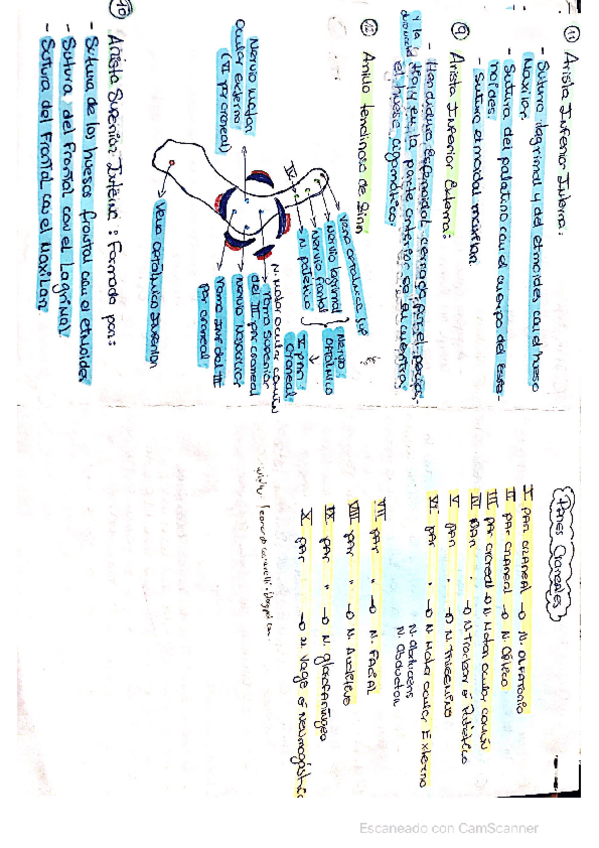 10) Arista Superior Interna: Formado por:
- Sutura de los huesos frontal con el etmoides
- Sutura del frontal con el lagrimal
- Sutura del Frontal con el Maxilar
11) Arista Inferior Interna:
- Sutura lagrimal y del etmoides con el hueso
Maxilar.
- Sutura del palatino con el cuerpo del esfe-
noides.
- Sutura etmoidal maxilar.
9) Arista Inferior Externa:
- Hendidura esfenoidal cerrada por el perios,
y la
en la parte anterior se encuentra
el hueso zigomático
12) Anillo tendinoso de Sinn
Nervio Motor
Ocular externo
(VI par craneal)
IV
Vena oftálmica
Nervio lagrimal
Nervio frontal
N. patético
Nervio
oftálmico
↓
I par
craneal
N. Motor ocular común
→ rama superior
del III par craneal
Nervio Nasociliar
rama inf del III
par craneal.
Vena oftálmica Inferior
Pares Craneales
I par craneal → N. Olfatorio
II par craneal → N. Óptico
III par craneal → N. Motor ocular común
IV par → N. Troclear ó Patético
V par → N. Trigémino
VI par → N. Motor ocular Externo
N. Abducens
N. Abductor
VII par " → N. Facial
VIII par " → N. Auditivo
IX par " → N. glosofaríngeo
X par → N. Vago ó Neumogástric
Escaneado con CamScanner